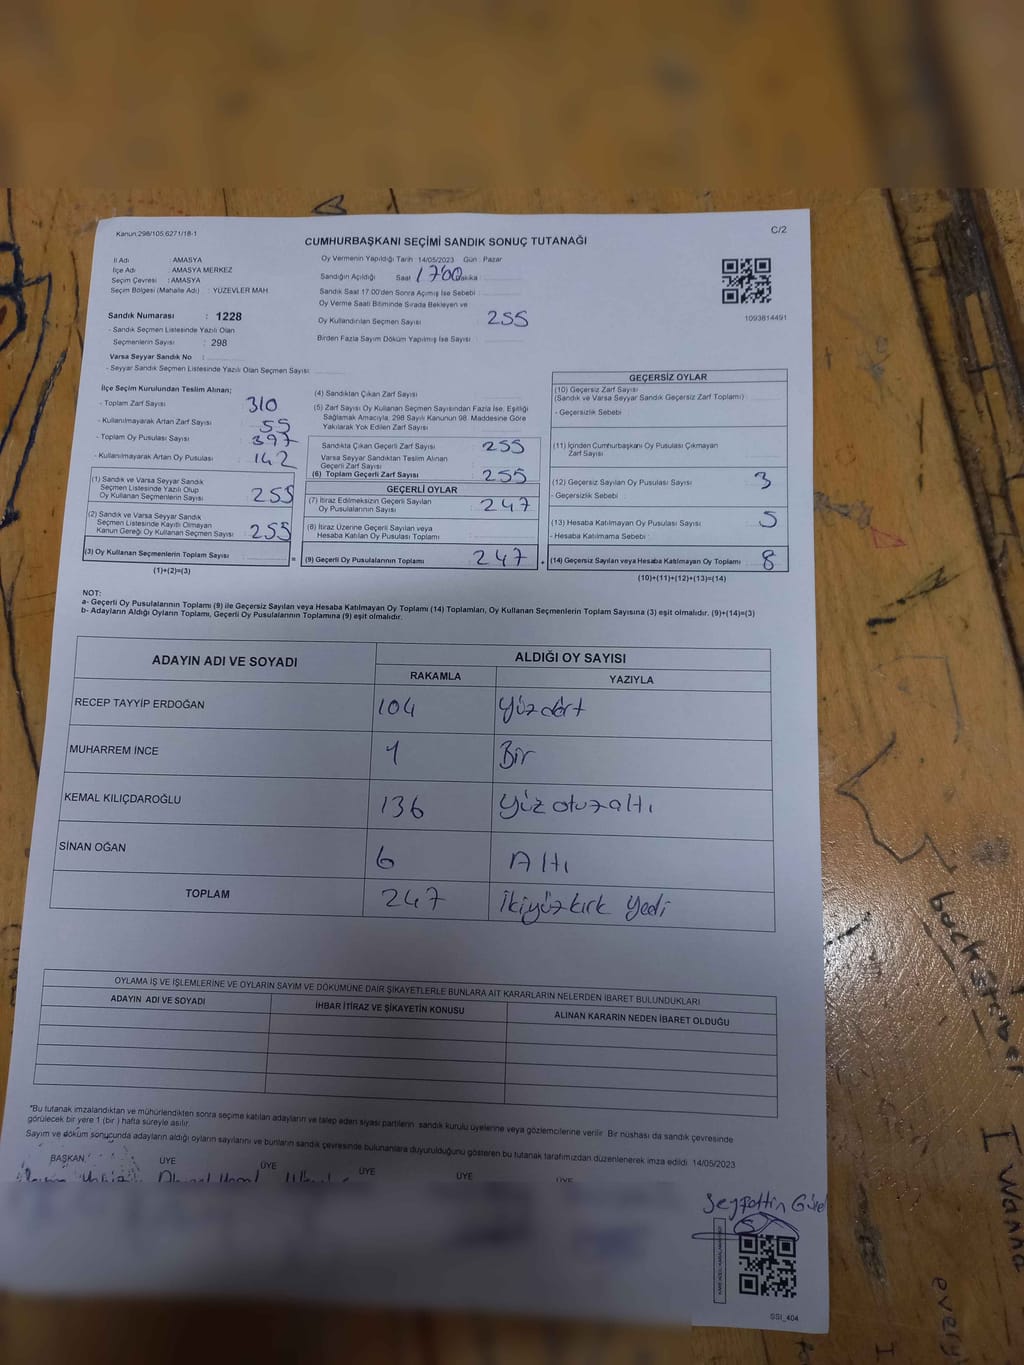 Kanun:298/105,6271/18-1
C/2
CUMHURBAŞKANI SEÇİMİ SANDIK SONUÇ TUTANAĞI
İl Adı : AMASYA
İlçe Adı : AMASYA MERKEZ
Seçim Çevresi : AMASYA
Seçim Bölgesi (Mahalle Adı) : YÜZEVLER MAH
Sandık Numarası : 1228
- Sandık Seçmen Listesinde Yazılı Olan
Seçmenlerin Sayısı : 298
Varsa Seyyar Sandık No :
- Seyyar Sandık Seçmen Listesinde Yazılı Olan Seçmen Sayısı:
Oy Vermenin Yapıldığı Tarih : 14/05/2023 Gün : Pazar
Sandığın Açıldığı Saat 17:00 Dakika
Sandık Saat 17.00'den Sonra Açımış İse Sebebi
Oy Verme Saati Bitiminde Sırada Bekleyen ve
Oy Kullandırılan Seçmen Sayısı : 255
Birden Fazla Sayım Döküm Yapılmış İse Sayısı :
1093814491
İlçe Seçim Kurulundan Teslim Alınan;
- Toplam Zarf Sayısı : 310
- Kullanılmayarak Artan Zarf Sayısı : 55
- Toplam Oy Pusulası Sayısı : 397
- Kullanılmayarak Artan Oy Pusulası : 142
(1) Sandık ve Varsa Seyyar Sandık
Seçmen Listesinde Yazılı Olup
Oy Kullanan Seçmenlerin Sayısı : 255
(2) Sandık ve Varsa Seyyar Sandık
Seçmen Listesinde Kayıtlı Olmayan
Kanun Gereği Oy Kullanan Seçmen Sayısı : 255
(3) Oy Kullanan Seçmenlerin Toplam Sayısı
(1)+(2)=(3)
(4) Sandıktan Çıkan Zarf Sayısı
(5) Zarf Sayısı Oy Kullanan Seçmen Sayısından Fazla İse, Eşitliği
Sağlamak Amacıyla; 298 Sayılı Kanunun 98. Maddesine Göre
Yakılarak Yok Edilen Zarf Sayısı
Sandıkta Çıkan Geçerli Zarf Sayısı : 255
Varsa Seyyar Sandıktan Teslim Alınan
Geçerli Zarf Sayısı
(6) Toplam Geçerli Zarf Sayısı : 255
GEÇERLİ OYLAR
(7) İtiraz Edilmeksizin Geçerli Sayılan
Oy Pusulalarının Sayısı : 247
(8) İtiraz Üzerine Geçerli Sayılan veya
Hesaba Katılan Oy Pusulaları Toplamı
(9) Geçerli Oy Pusulalarının Toplamı : 247
GEÇERSİZ OYLAR
(10) Geçersiz Zarf Sayısı
(Sandık ve Varsa Seyyar Sandık Geçersiz Zarf Toplamı)
- Geçersizlik Sebebi
(11) İçinden Cumhurbaşkanı Oy Pusulası Çıkmayan
Zarf Sayısı
(12) Geçersiz Sayılan Oy Pusulası Sayısı : 3
- Geçersizlik Sebebi :
(13) Hesaba Katılmayan Oy Pusulası Sayısı : 5
- Hesaba Katılmama Sebebi :
(14) Geçersiz Sayılan veya Hesaba Katılmayan Oy Toplamı : 8
(10)+(11)+(12)+(13)=(14)
NOT:
a- Geçerli Oy Pusulalarının Toplamı (9) ile Geçersiz Sayılan veya Hesaba Katılmayan Oy Toplamı (14) Toplamları, Oy Kullanan Seçmenlerin Toplam Sayısına (3) eşit olmalıdır. (9)+(14)=(3)
b- Adayların Aldığı Oyların Toplamı, Geçerli Oy Pusulalarının Toplamına (9) eşit olmalıdır.
ADAYIN ADI VE SOYADI
ALDIĞI OY SAYISI
RAKAMLA YAZIYLA
RECEP TAYYİP ERDOĞAN 104 Yüzdört
MUHARREM İNCE 1 Bir
KEMAL KILIÇDAROĞLU 136 Yüzotuzaltı
SİNAN OĞAN 6 Altı
TOPLAM 247 İkiyüzkırk yedi
OYLAMA İŞ VE İŞLEMLERİNE VE OYLARIN SAYIM VE DÖKÜMÜNE DAİR ŞİKAYETLERLE BUNLARA AİT KARARLARIN NELERDEN İBARET BULUNDUKLARI
ADAYIN ADI VE SOYADI İHBAR İTİRAZ VE ŞİKAYETİN KONUSU ALINAN KARARIN NEDEN İBARET OLDUĞU
"Bu tutanak imzalandıktan ve mühürlendikten sonra seçime katılan adayların ve talep eden siyasi partilerin sandık kurulu üyelerine veya gözlemcilerine verilir. Bir nüshası da sandık çevresinde
görülecek bir yere 1 (bir ) hafta süreyle asılır.
Sayım ve döküm sonucunda adayların aldığı oyların sayılarını ve bunların sandık çevresinde bulunanlara duyurulduğunu gösteren bu tutanak tarafımızdan düzenlenerek imza edildi. 14/05/2023
BAŞKAN ÜYE ÜYE ÜYE ÜYE ÜYE
Seyfettin
SSI_404
I wanna
every
I